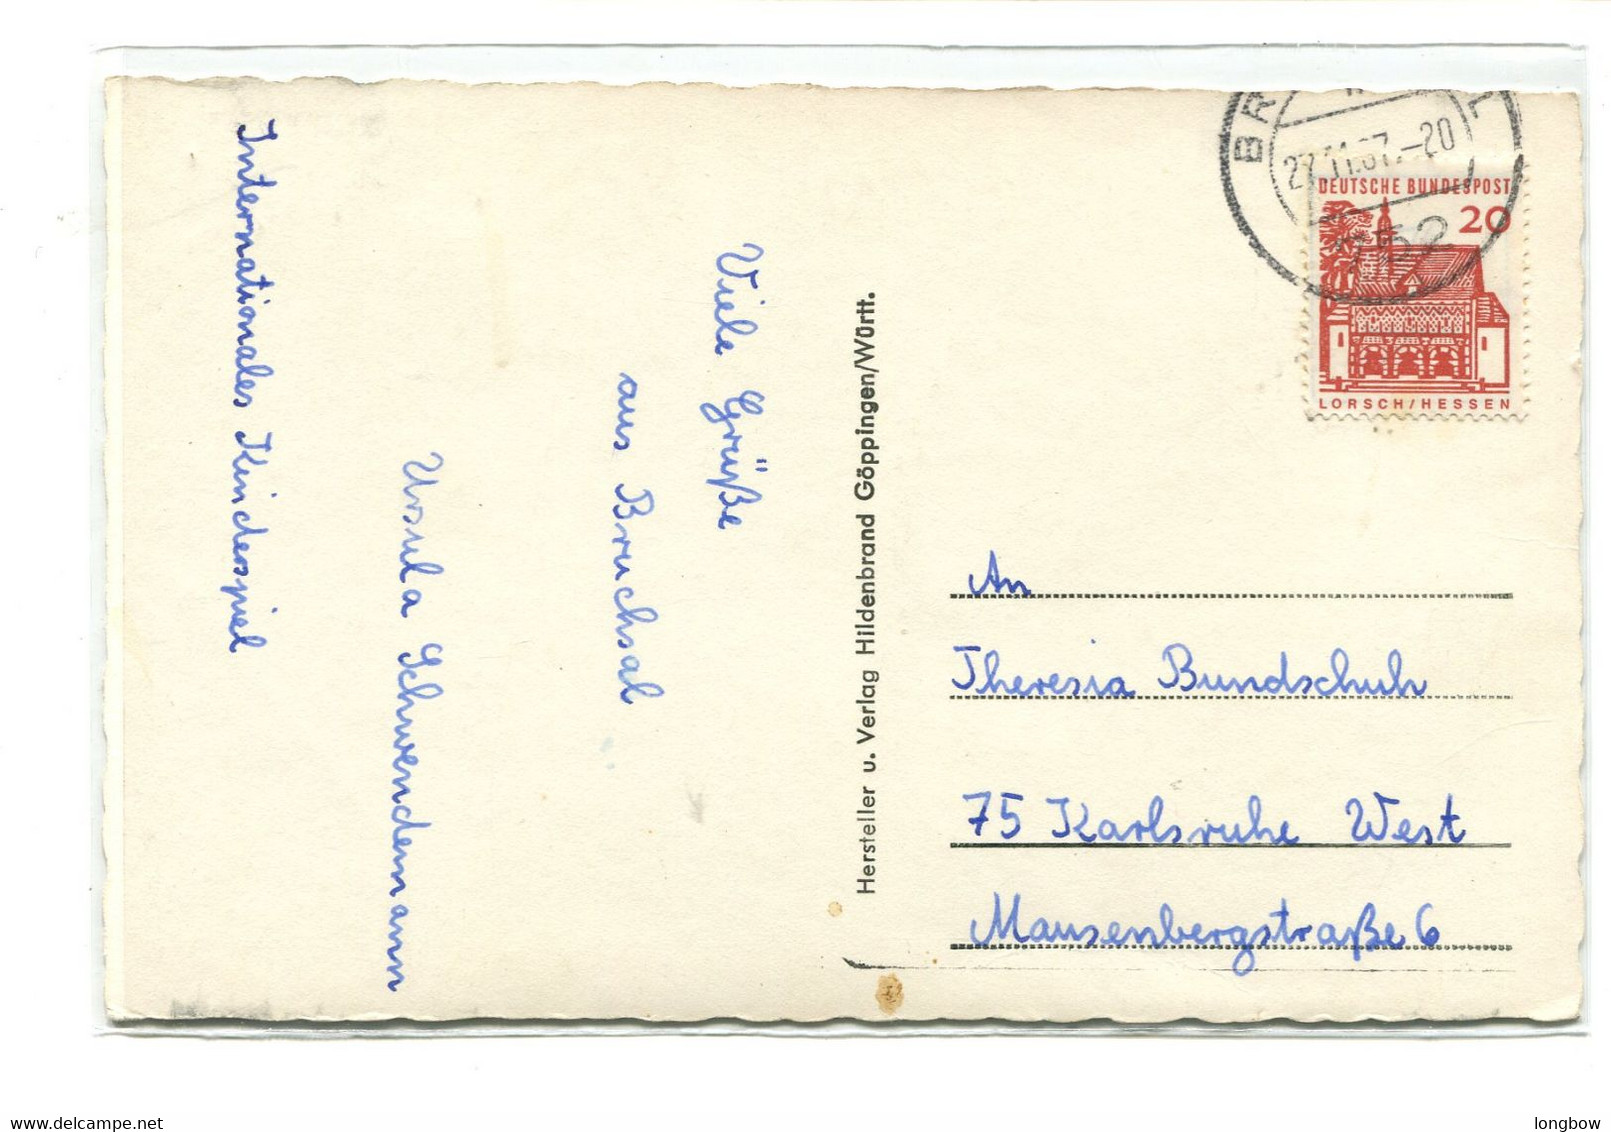 Internationales Kinderspiel
Viele Grüße
aus Bruchsal
Ursula Schwendemann
Hersteller u. Verlag Hildenbrand Göppingen/Württ.
27.11.67.-20
7152
DEUTSCHE BUNDESPOST
20
LORSCH/HESSEN
An
Theresia Bundschuh
75 Karlsruhe West
Mausenbergstraße 6
longbow